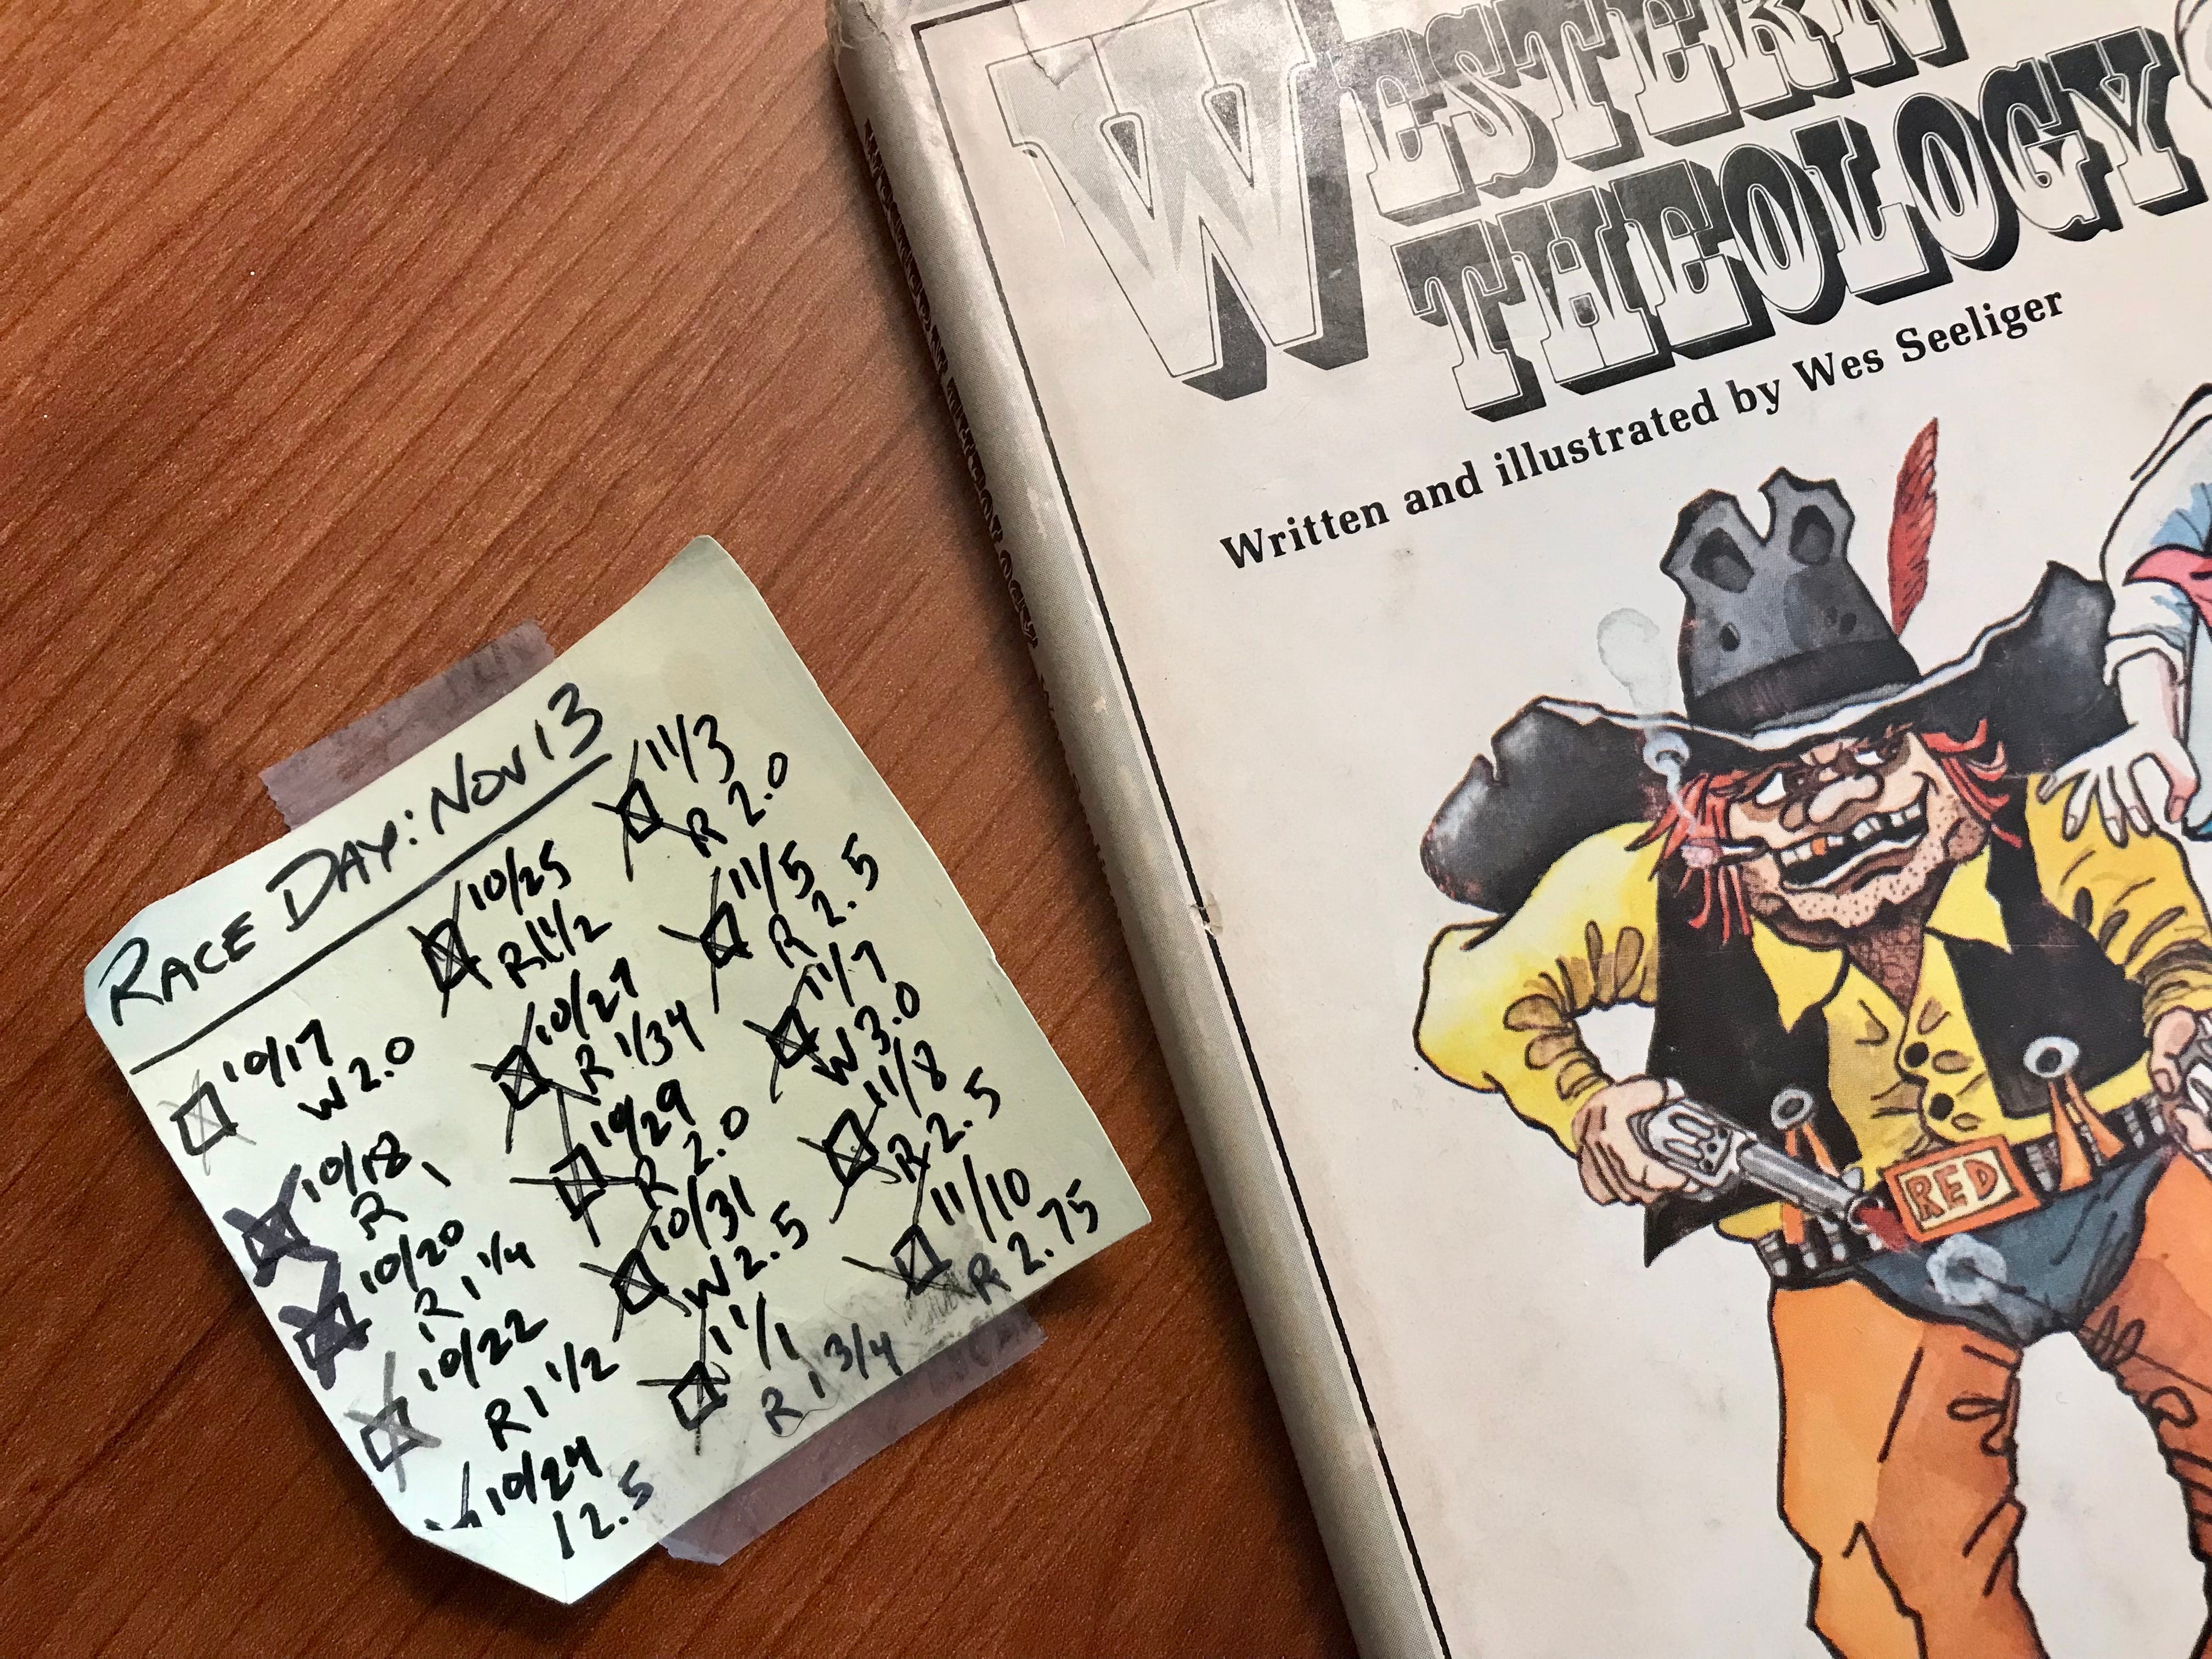 RACE DAY: NOV 13
10/17
W 2.0
10/18
R 1
10/20
R 1 1/4
10/22
R 1 1/2
10/24
12.5
10/25
R 1 1/2
10/27
R 1/34
10/29
R 2.0
10/31
W 2.5
11/1
R 1 3/4
11/3
R 2.0
11/5
R 2.5
11/7
W 3.0
11/8
R 2.5
11/10
R 2.75
WESTERN
THEOLOGY
Written and illustrated by Wes Seeliger
RED